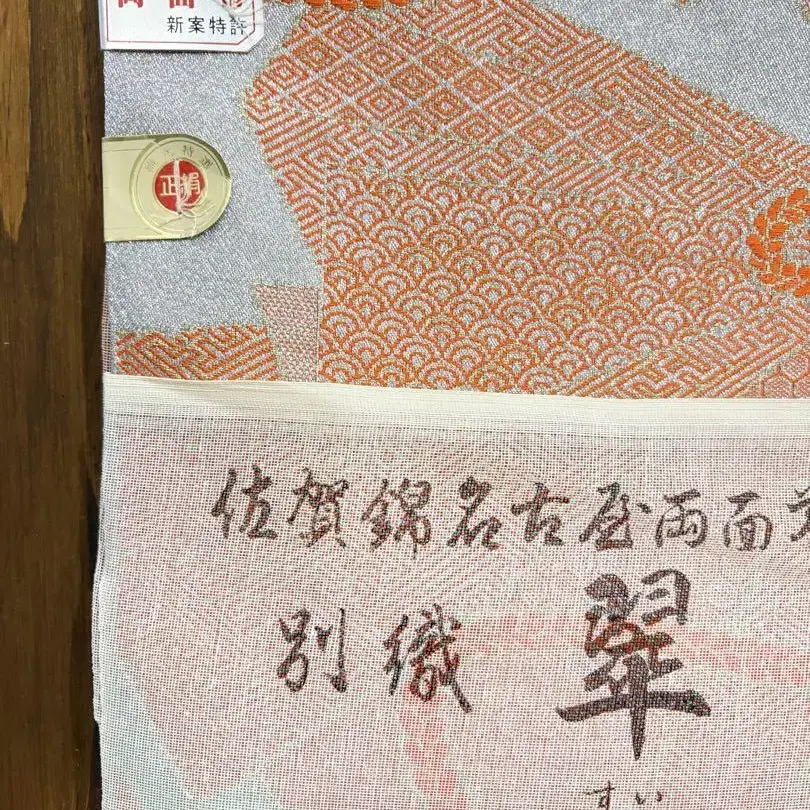 新案特許
正絹
佐賀錦名古屋両面
別織
翠
すい